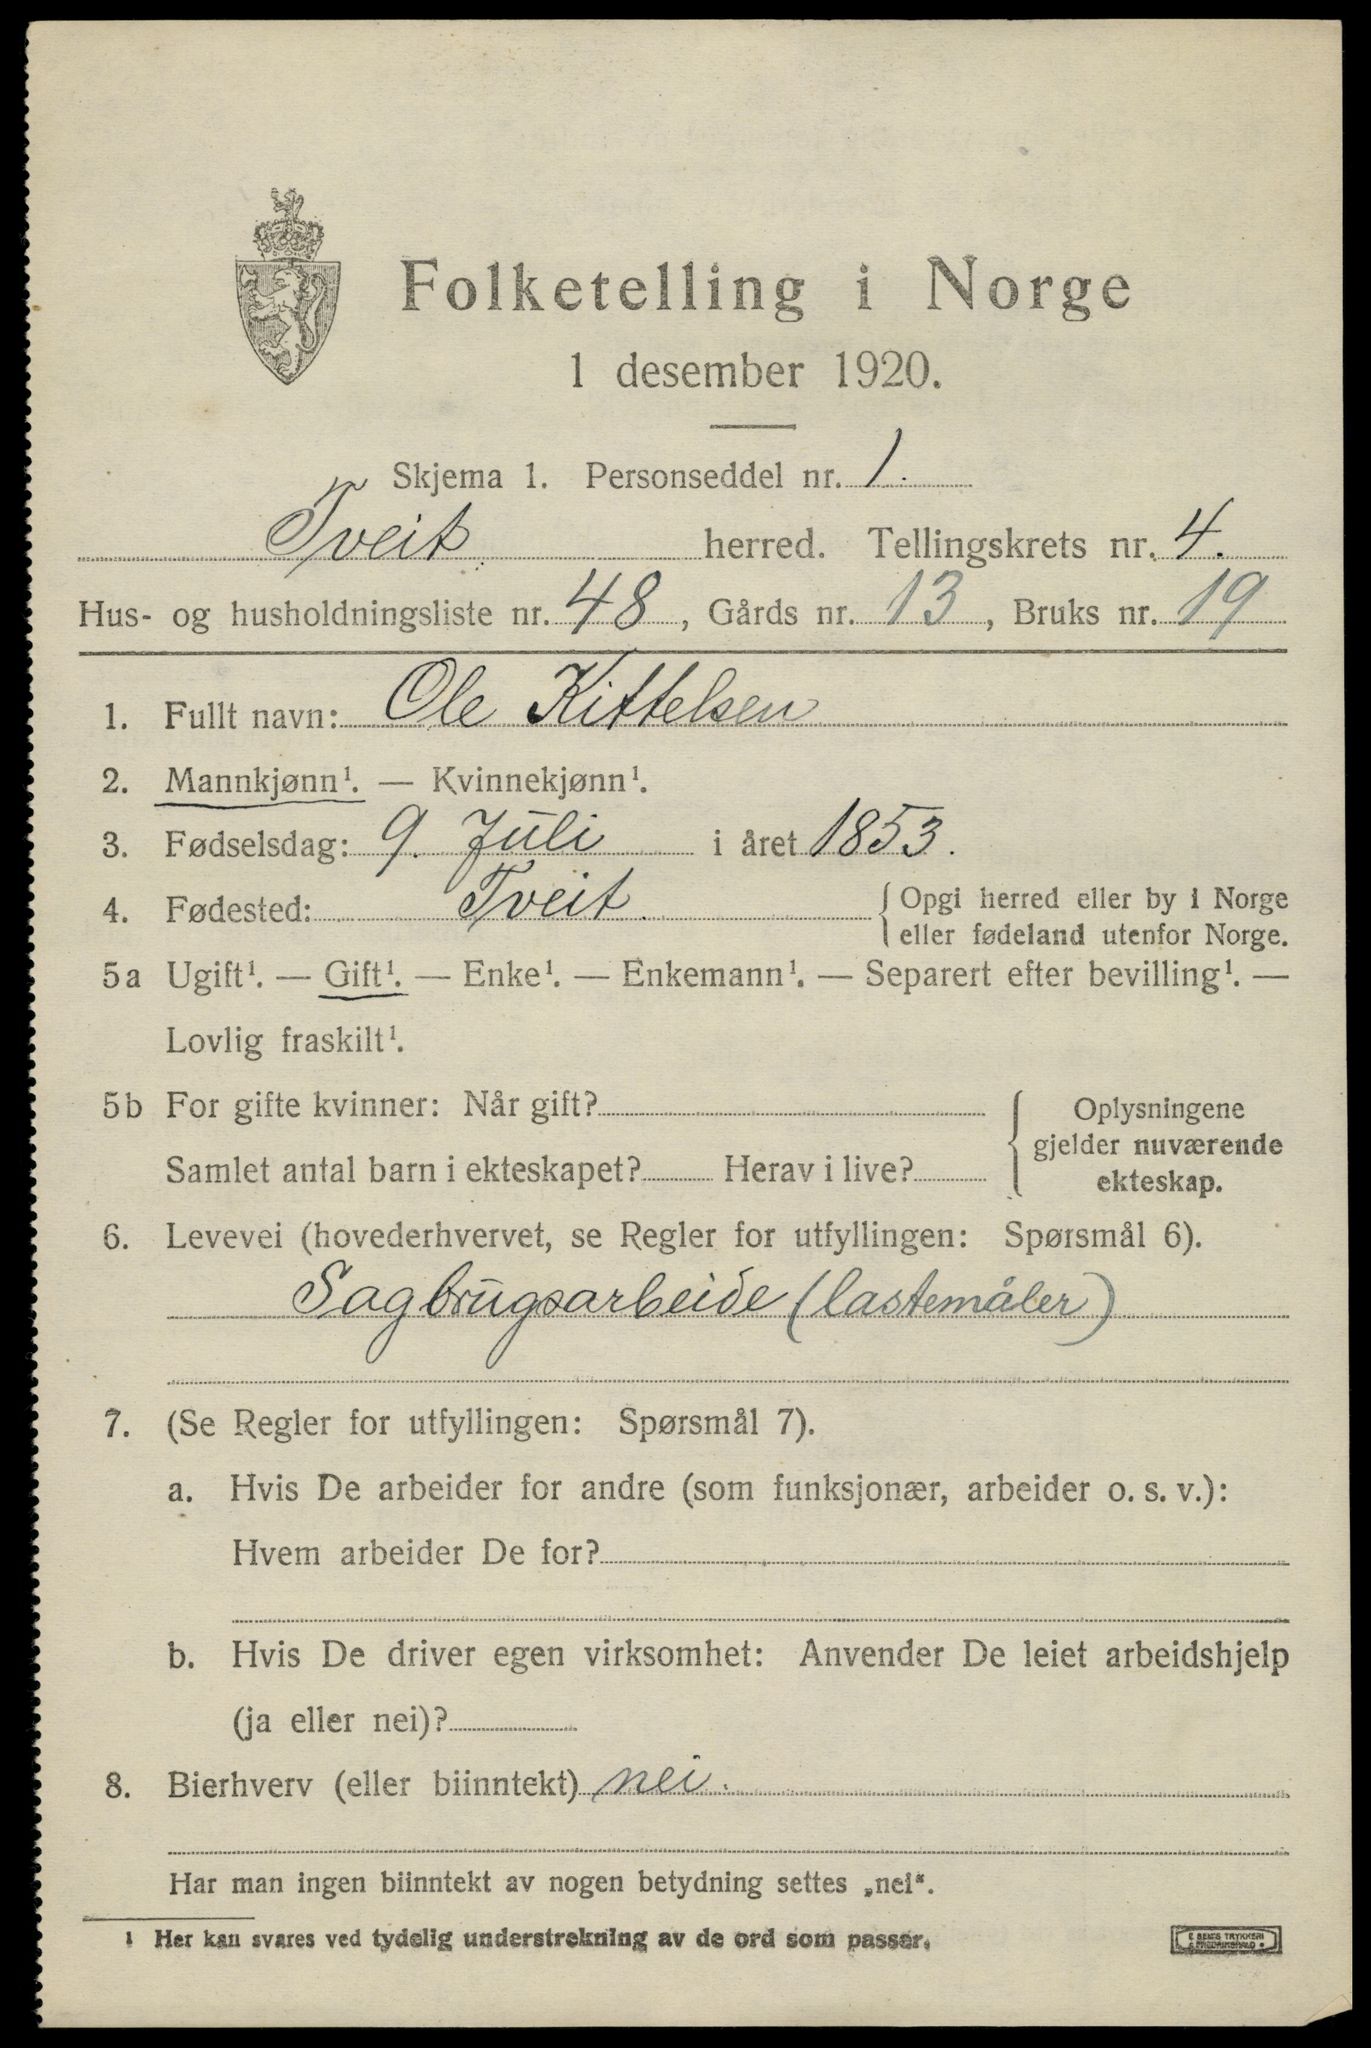 Folketelling i Norge
1 desember 1920.
Skjema 1. Personseddel nr. 1.
Tveit herred. Tellingskrets nr. 4.
Hus- og husholdningsliste nr. 48, Gårds nr. 13, Bruks nr. 19
1. Fullt navn: Ole Kittelsen
2. Mannkjønn¹. — Kvinnekjønn¹.
3. Fødselsdag: 9. Juli i året 1853.
4. Fødested: Tveit. { Opgi herred eller by i Norge
eller fødeland utenfor Norge.
5a Ugift¹. — Gift¹. — Enke¹. — Enkemann¹. — Separert efter bevilling¹. —
Lovlig fraskilt¹.
5b For gifte kvinner: Når gift? { Oplysningene
gjelder nuværende
Samlet antal barn i ekteskapet? Herav i live? ekteskap.
6. Levevei (hovederhvervet, se Regler for utfyllingen: Spørsmål 6).
Sagbrugsarbeide (lastemåler)
7. (Se Regler for utfyllingen: Spørsmål 7).
a. Hvis De arbeider for andre (som funksjonær, arbeider o. s. v.):
Hvem arbeider De for?
b. Hvis De driver egen virksomhet: Anvender De leiet arbeidshjelp
(ja eller nei)?
8. Bierhverv (eller biinntekt) nei.
Har man ingen biinntekt av nogen betydning settes „nei“.
1 Her kan svares ved tydelig understrekning av de ord som passer.